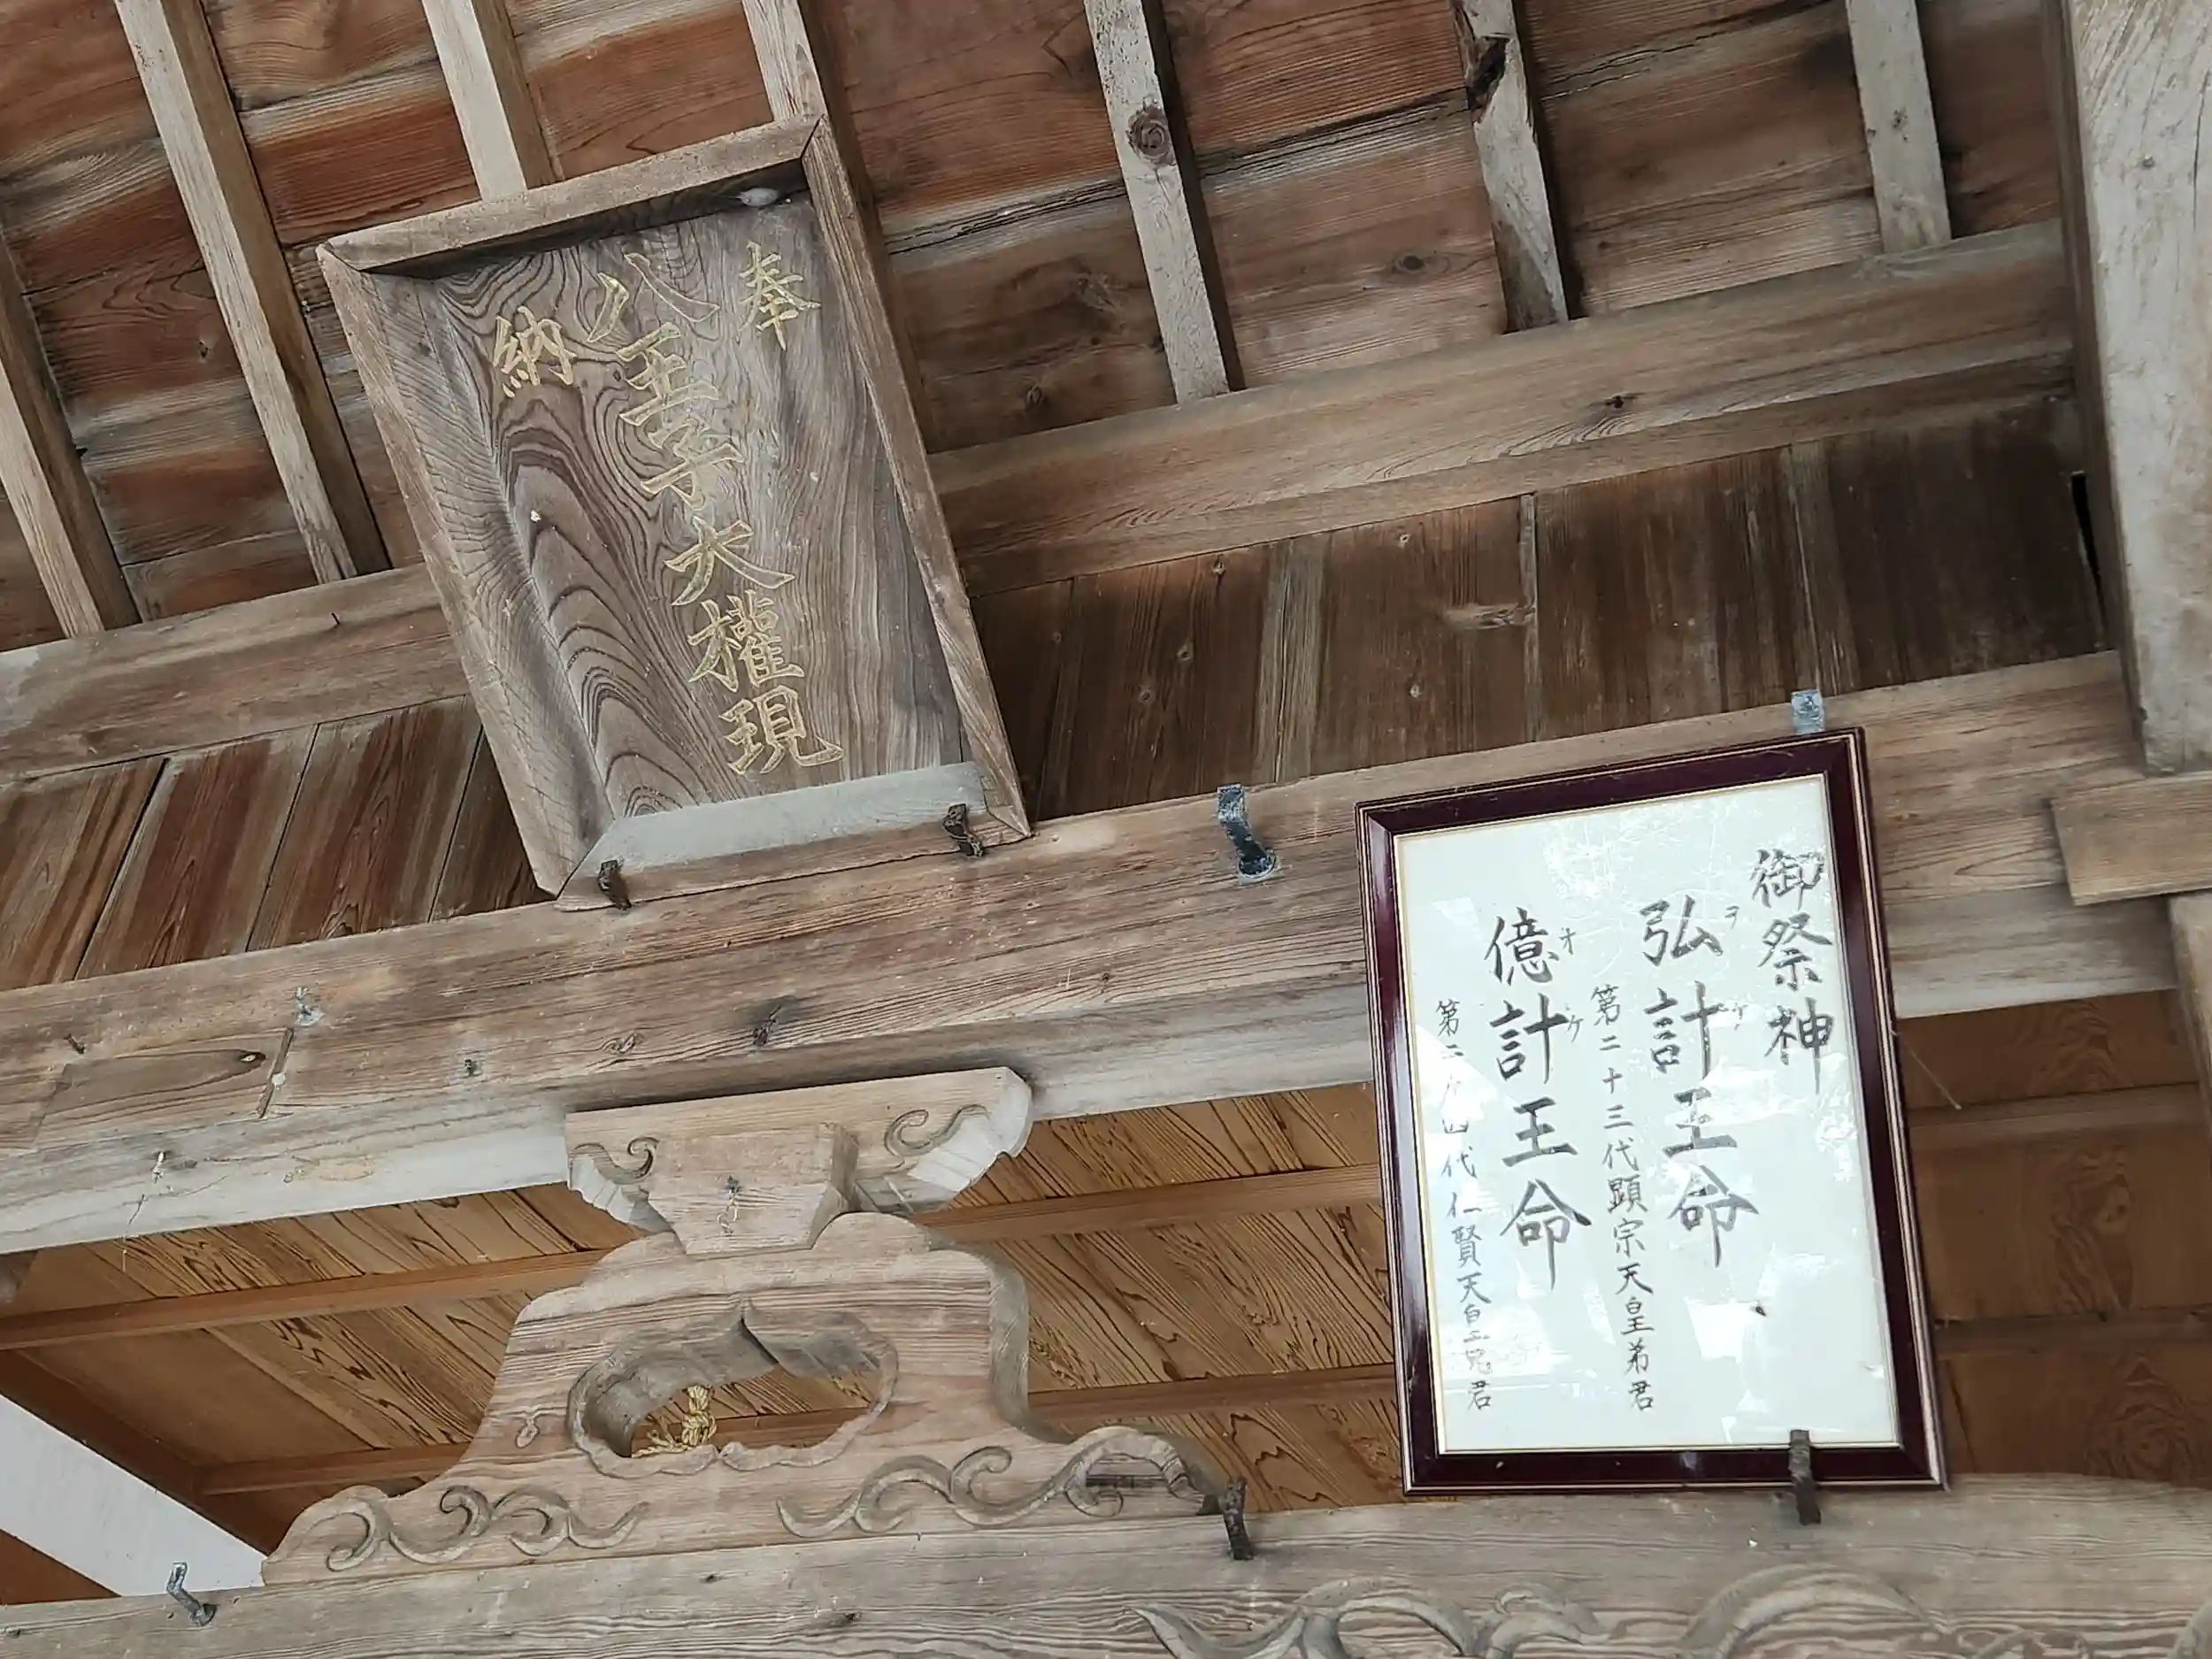 奉
八王子大權現
納
御祭神
弘計王命
ヲケ
第二十三代顕宗天皇弟君
億計王命
オケ
第二十四代仁賢天皇兄君